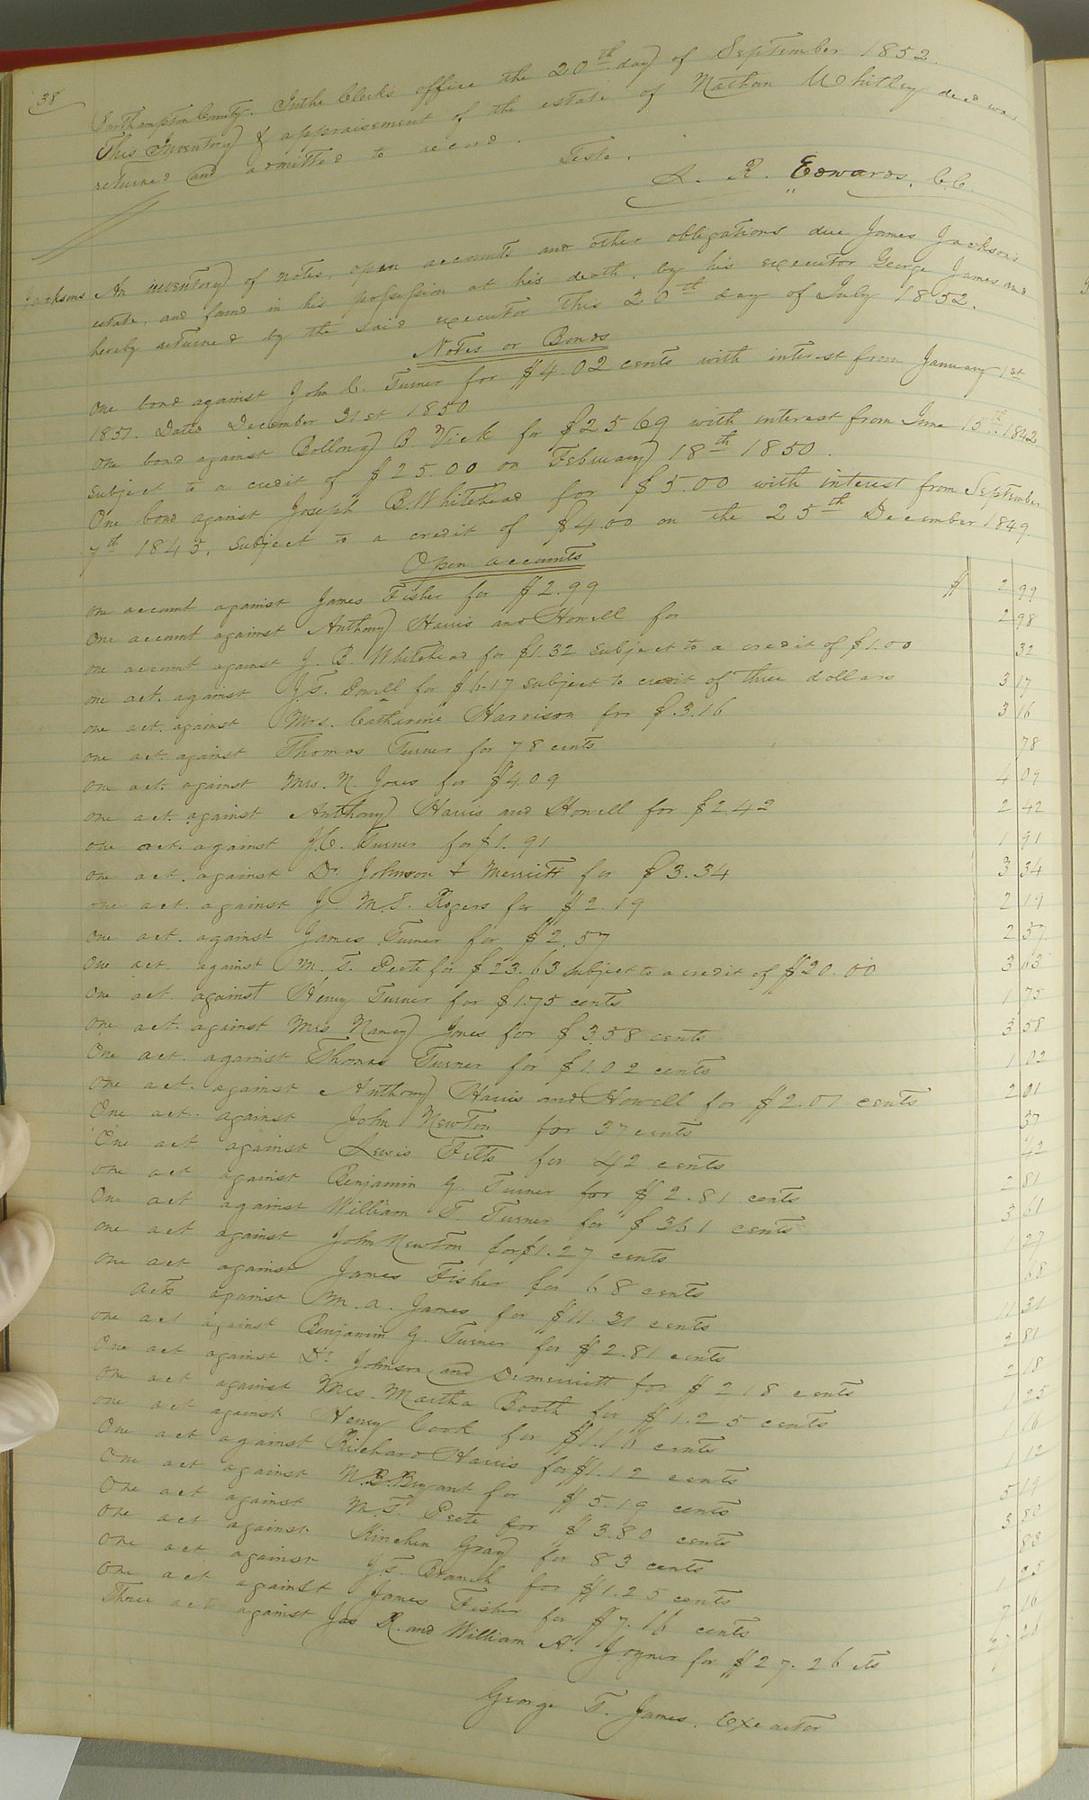 38
Southampton County. In the Clerk's office the 20th day of September 1852.
This Inventory & appraisement of the estate of Nathan Whitley decd was
returned and admitted to record.
Teste.
L. R. Edwards, C.C.
Jacksons An inventory of notes, open accounts and other obligations due James Jackson's
estate, and found in his possession at his death, by his executor George James and
hereby returned by the said executor this 20th day of July 1852.
Notes or Bonds
One bond against John C. Turner for $4.02 cents with interest from January 1st
1851. Dated December 31st 1850
One bond against Bolloway B. Vick for $25 69 with interest from June 15th 1842
subject to a credit of $25.00 on February 18th 1850.
One bond against Joseph B. Whitehead for $5.00 with interest from September
7th 1845, subject to a credit of $4.00 on the 25th December 1849.
Open accounts
One account against James Fisher for $2.99 $ 2 99
One account against Anthony Harris and Howell for 2 98
one account against J. B. Whitehead for $1.32 subject to a credit of $1.00 32
one act. against J. T. Powell for $6.17 subject to credit of three dollars 3 17
one act. against Mrs. Catharine Harrison for $3.16 3 16
one act. against Thomas Turner for 78 cents 78
one act. against Mrs. N. Jones for $4.09 4 09
one act. against Anthony Harris and Howell for $2.42 2 42
one act. against J. C. Turner for $1.91 1 91
one act. against Dr. Johnson & Merritt for $3.34 3 34
one act. against J. M. S. Rogers for $2.19 2 19
one act. against James Turner for $2.57 2 57
One act. against M. T. Peete for $23.63 subject to a credit of $20.00 3 63
One act. against Henry Turner for $1.75 cents 1 75
one act. against Mrs Nancy Jones for $3.58 cents 3 58
One act. against Thomas Turner for $1.02 cents 1 02
One act. against Anthony Harris and Howell for $2.01 cents 2 01
One act. against John Newton for 37 cents 37
One act against Lewis Fitts for 42 cents 42
one act against Benjamin G. Turner for $2.81 cents 2 81
One act against William T. Turner for $3.61 cents 3 61
one act against John Newton for $1.27 cents 1 27
one act against James Fisher for 68 cents 68
acts against M. A. James for $11.31 cents 11 31
one act against Benjamin G. Turner for $2.81 cents 2 81
One act against Dr. Johnson and Demerritt for $2 18 cents 2 18
One act against Mrs. Martha Booth for $1.25 cents 1 25
one act against Henry Cook for $1.16 cents 1 16
One act against Richard Harris for $1.12 cents 1 12
One act against N. B. Bryant for $5.19 cents 5 19
One act against M. T. Peete for $3.80 cents 3 80
one act against Kinchen Gray for 83 cents 83
one act against J. T. Branch for $1.25 cents 1 25
one act against James Fisher for $7.16 cents 7 16
Three acts against Jas R. and William A. Joyner for $27.26 cts 27 26
George T. James, Executor